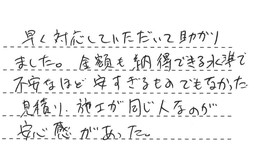 早く対応していただいて助かり
ました。金額も納得できる水準で
不安なほど安すぎるものでもなかった
見積り、施工が同じ人なのが
安心感があった。